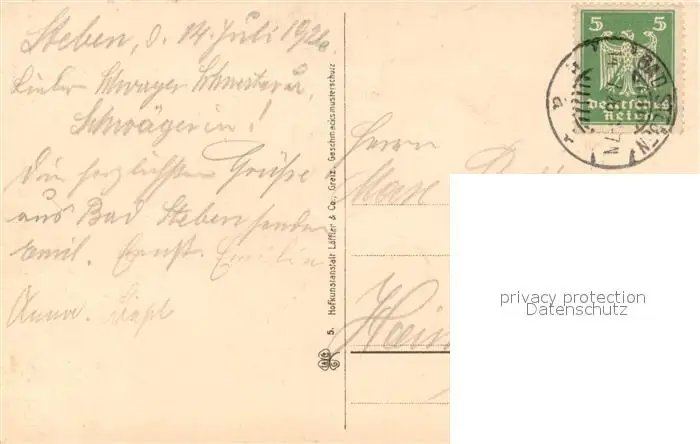 Steben, d. 14. Juli 1926.
Lieber Schwager Schwester u.
Schwägerin!
Die herzlichsten Grüße
aus Bad Steben senden
Emil. Ernst. Emilie
Anna.
5. Hofkunstanstalt Löffler & Co., Greiz. Geschmacksmusterschutz
5 5
Deutsches
Reich
BAD STEBEN
Herrn
Max
privacy protection
Datenschutz